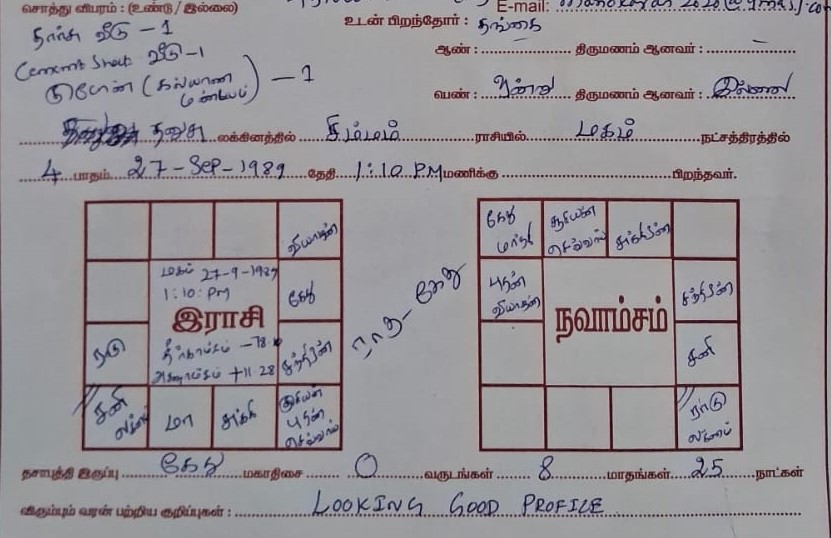 சொத்து விபரம் : (உண்டு / இல்லை)
E-mail:
உடன் பிறந்தோர் : தங்கை
வீடு - 1
வீடு - 1
ஆண் : திருமணம் ஆனவர் : –
(கல்யாண மண்டபம்) - 1
பெண் : ஒன்று திருமணம் ஆனவர் : இல்லை
தனுசு லக்கினத்தில் சிம்மம் ராசியில் மகம் நட்சத்திரத்தில்
4 பாதம் 27-Sep-1989 தேதி 1:10 PM மணிக்கு பிறந்தவர்.
வியாழன்
மகம் 27-9-1989
1:10:PM
கேது
இராசி
தீர்க்காம்சம் -78
அட்சாம்சம் +11.28
ராகு
சந்திரன்
சனி
லக்னம்
மா
சுக்கி
சூரியன்
புதன்
செவ்வாய்
ராகு - கேது
கேது
மாந்தி
சூரியன்
செவ்வாய்
சுக்கிரன்
புதன்
வியாழன்
நவாம்சம்
சந்திரன்
சனி
ராகு
லக்னம்
தசாபுத்தி இருப்பு கேது மகாதிசை 0 வருடங்கள் 8 மாதங்கள் 25 நாட்கள்
விரும்பும் வரன் பற்றிய குறிப்புகள் : LOOKING GOOD PROFILE